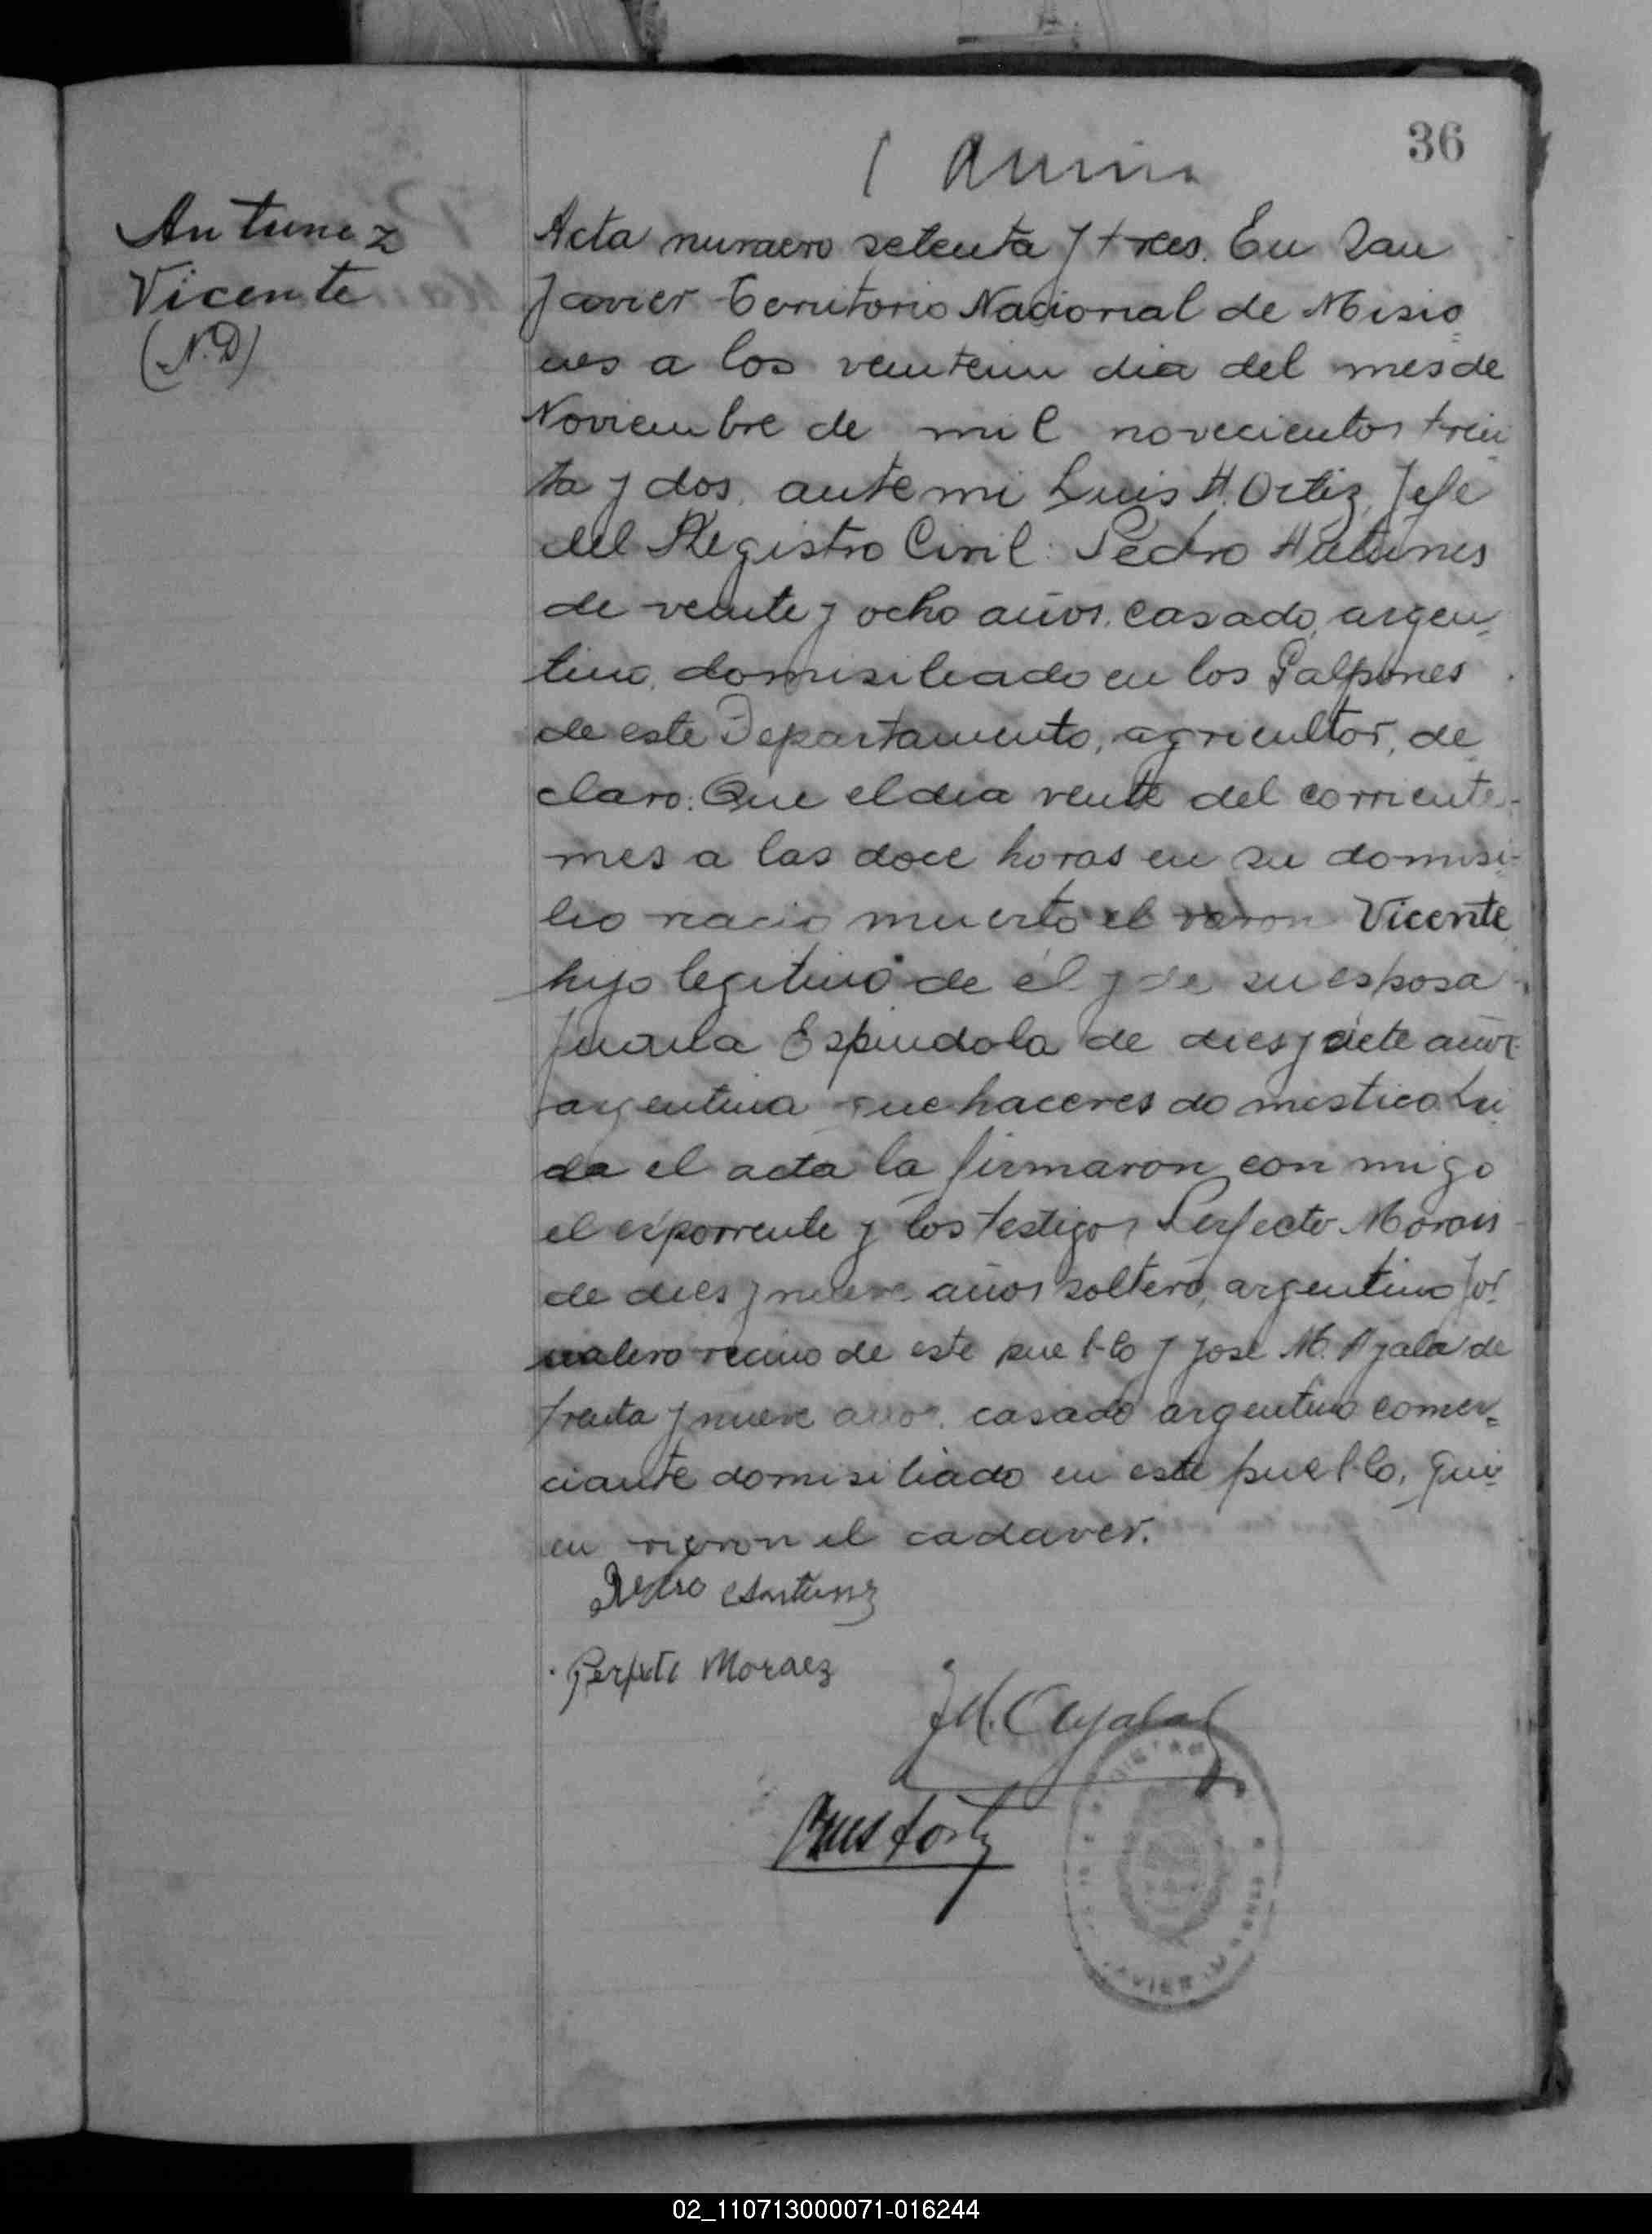 36
Antunez
Vicente
(N.D)
Acta numero setenta y tres. En San
Javier Territorio Nacional de Misio
nes a los veinteun dia del mes de
Noviembre de mil novecientos trein
ta y dos, ante mi Luis A. Ortiz, Jefe
del Registro Civil: Pedro Antunes
de veinte y ocho años, casado, argen
tino, domisiliado en los Galpones
de este Departamento, agricultor, de
claro: Que el dia veinte del corriente
mes a las doce horas en su domisi-
lio nacio muerto el varon Vicente
hijo legitimo de él y de su esposa
Juana Espindola de dies y siete años
argentina quehaceres domestico Lei
da el acta la firmaron con migo
el exponente y los testigos Perfecto Moraes
de dies y nueve años soltero, argentino Jor
nalero vecino de este pueblo y José M. Ayala de
trenta y nueve años, casado argentino comer=
ciante domisiliado en este pueblo, qui
en vieron el cadaver.
Pedro Antunez
Perfeto Moraez
J.M. Ayala
Luis A Ortiz
02_110713000071-016244